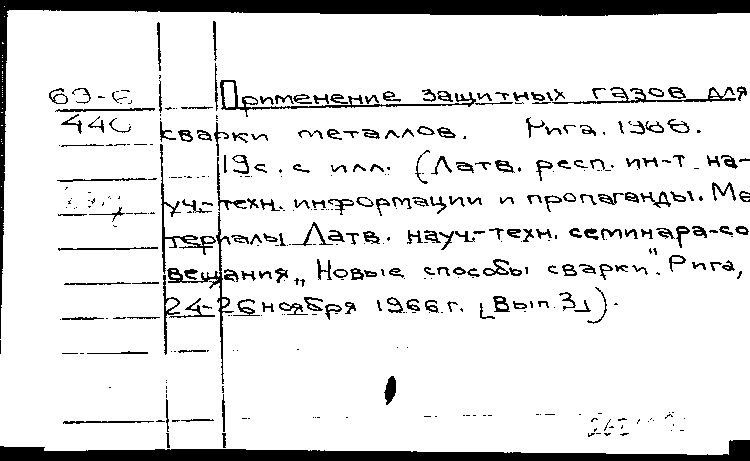 69-6 Применение защитных газов для
440 сварки металлов. Рига. 1966.
19с. с илл. (Латв. респ. ин-т на-
уч.-техн. информации и пропаганды. Ма
териалы Латв. науч.-техн. семинара-со
вещания „Новые способы сварки". Рига,
24-26 ноября 1966г. [Вып. 3]).